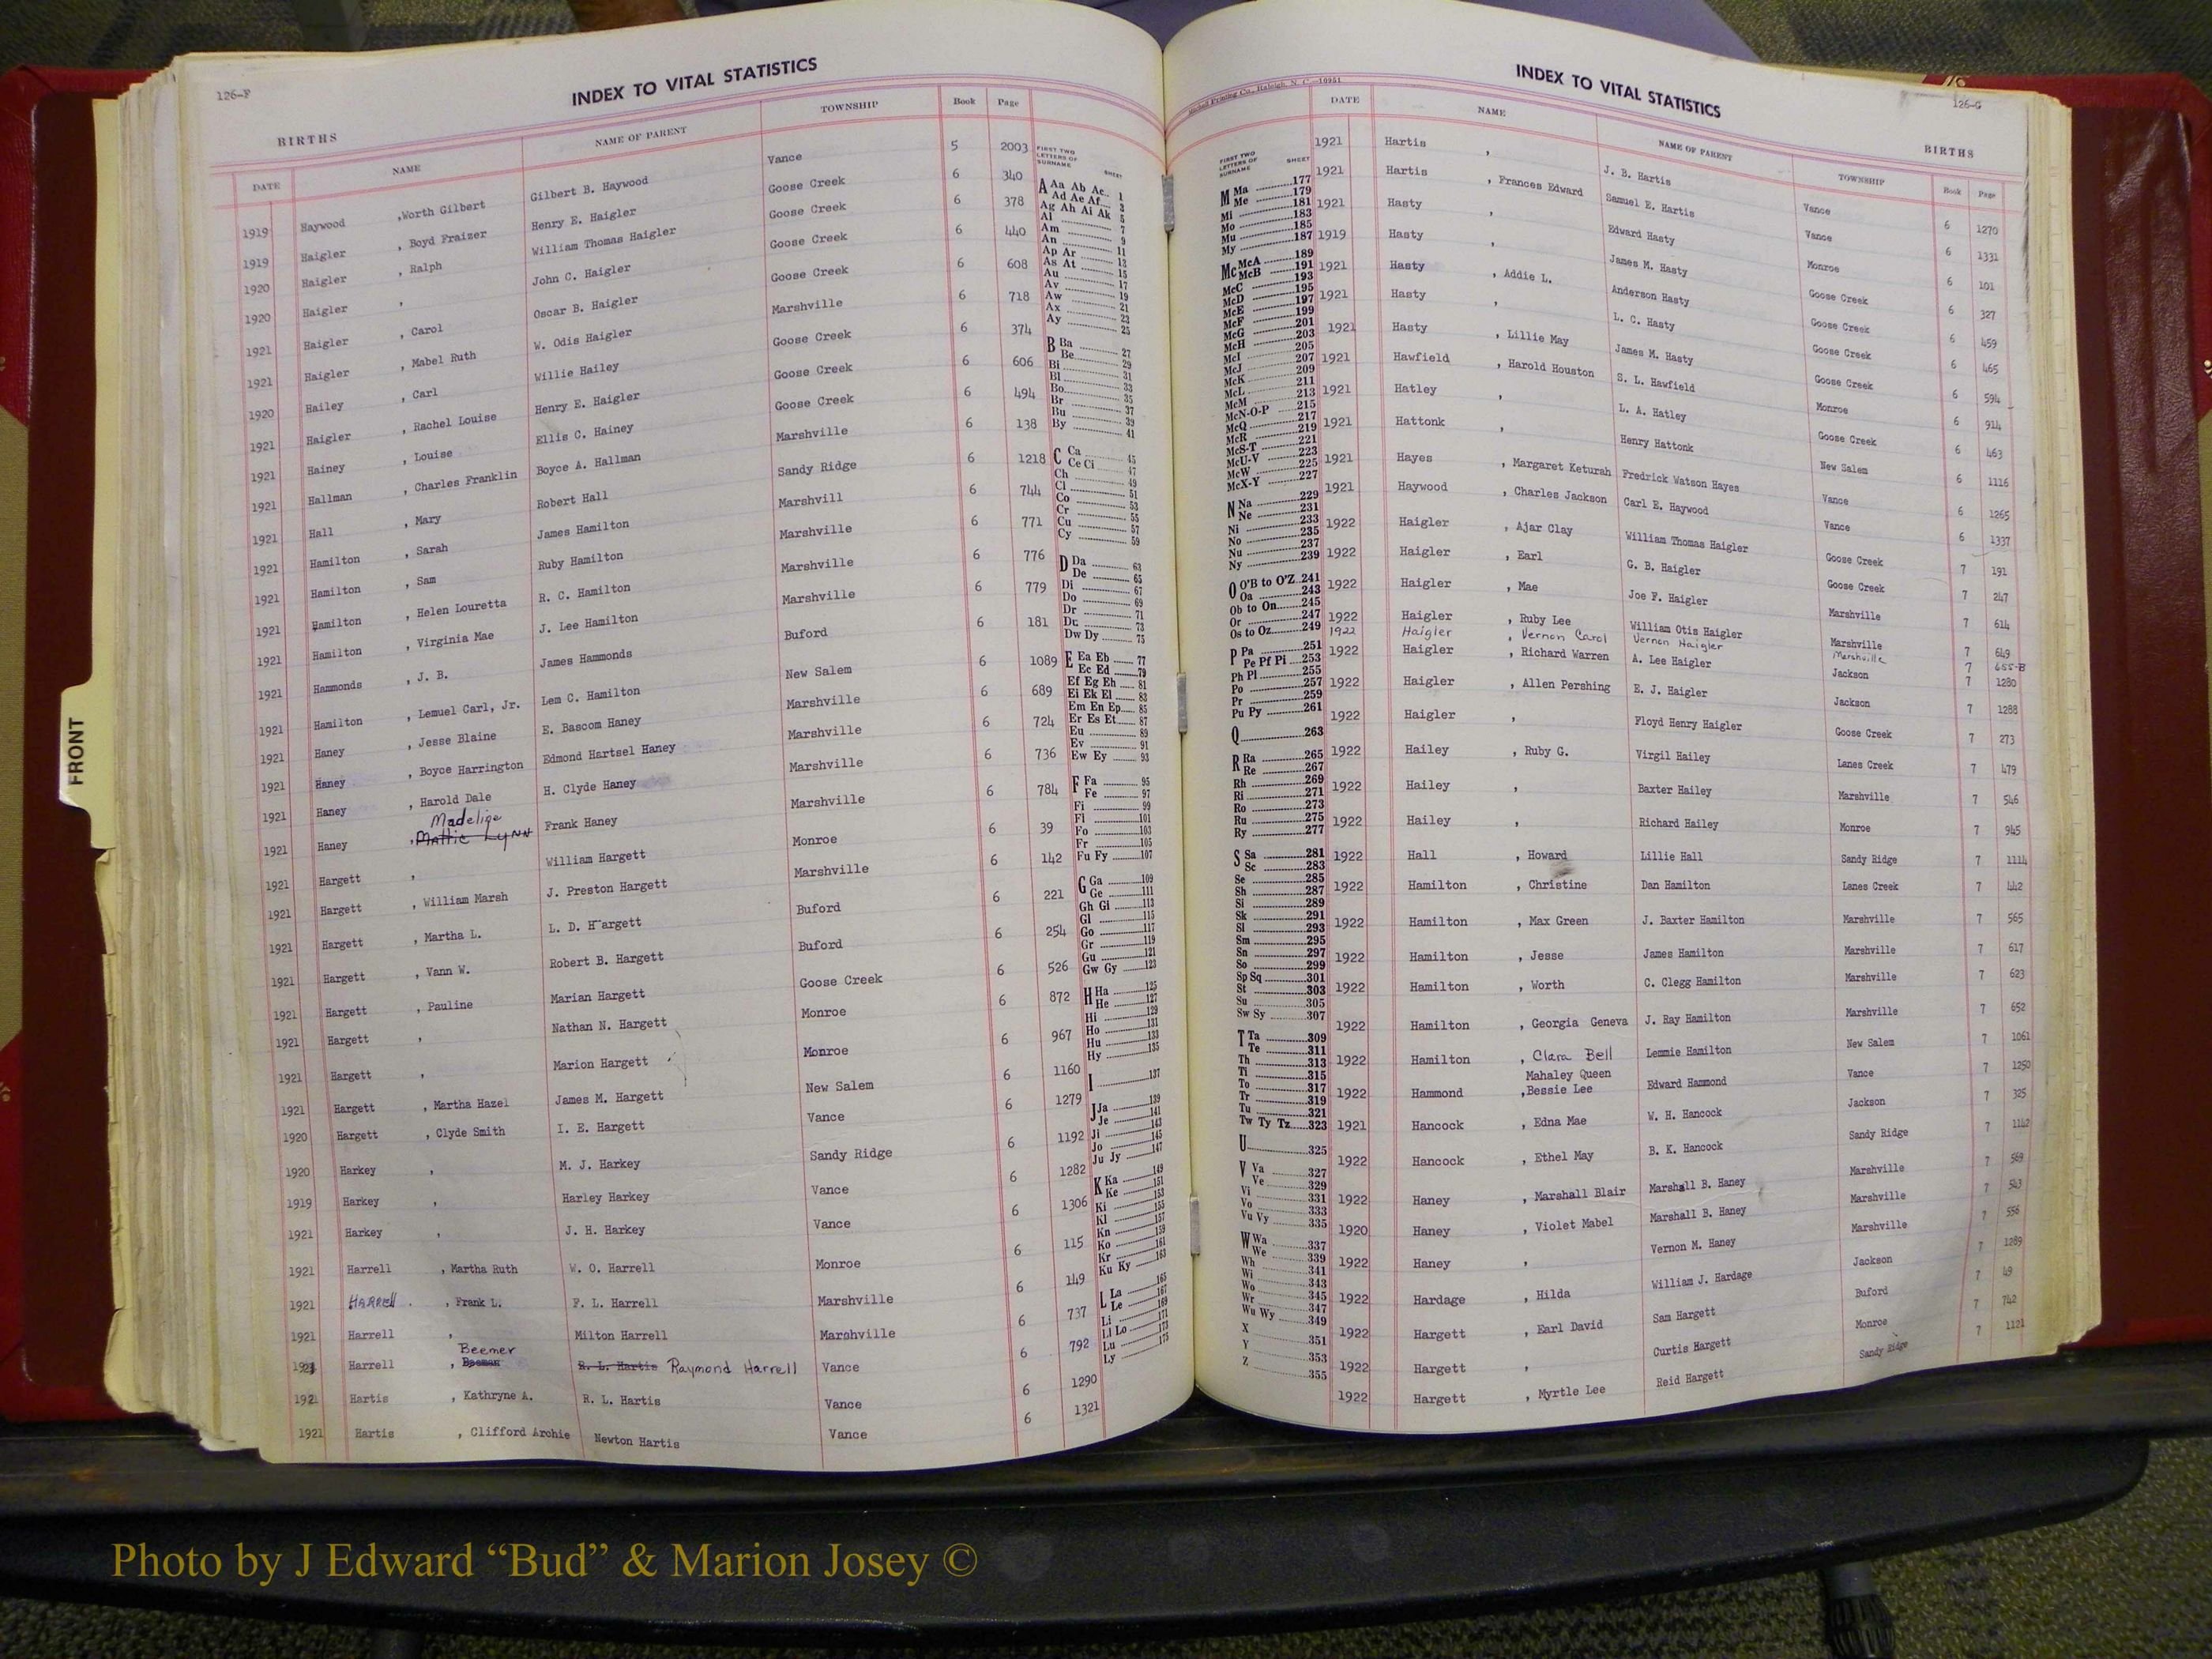 126-F
INDEX TO VITAL STATISTICS
BIRTHS
DATE NAME NAME OF PARENT TOWNSHIP Book Page
1919 Haywood , Worth Gilbert Gilbert B. Haywood Vance 5 2003
1919 Haigler , Boyd Fraizer Henry E. Haigler Goose Creek 6 340
1920 Haigler , Ralph William Thomas Haigler Goose Creek 6 378
1920 Haigler , John C. Haigler Goose Creek 6 440
1921 Haigler , Carol Oscar B. Haigler Goose Creek 6 608
1921 Haigler , Mabel Ruth W. Odis Haigler Marshville 6 718
1920 Hailey , Carl Willie Hailey Goose Creek 6 374
1921 Haigler , Rachel Louise Henry E. Haigler Goose Creek 6 606
1921 Hainey , Louise Ellis C. Hainey Goose Creek 6 494
1921 Hallman , Charles Franklin Boyce A. Hallman Marshville 6 138
1921 Hall , Mary Robert Hall Sandy Ridge 6 1218
1921 Hamilton , Sarah James Hamilton Marshvill 6 744
1921 Hamilton , Sam Ruby Hamilton Marshville 6 771
1921 Hamilton , Helen Louretta R. C. Hamilton Marshville 6 776
1921 Hamilton , Virginia Mae J. Lee Hamilton Marshville 6 779
1921 Hammonds , J. B. James Hammonds Buford 6 181
1921 Hamilton , Lemuel Carl, Jr. Lem C. Hamilton New Salem 6 1089
1921 Haney , Jesse Blaine E. Bascom Haney Marshville 6 689
1921 Haney , Boyce Harrington Edmond Hartsel Haney Marshville 6 724
1921 Haney , Harold Dale H. Clyde Haney Marshville 6 736
Madeline
1921 Haney , Mattie Lynn Frank Haney Marshville 6 784
1921 Hargett , William Hargett Monroe 6 39
1921 Hargett , William Marsh J. Preston Hargett Marshville 6 142
1921 Hargett , Martha L. L. D. Hargett Buford 6 221
1921 Hargett , Vann W. Robert B. Hargett Buford 6 254
1921 Hargett , Pauline Marian Hargett Goose Creek 6 526
1921 Hargett , Nathan N. Hargett Monroe 6 872
1921 Hargett , Marion Hargett Monroe 6 967
1921 Hargett , Martha Hazel James M. Hargett New Salem 6 1160
1920 Hargett , Clyde Smith I. E. Hargett Vance 6 1279
1920 Harkey , M. J. Harkey Sandy Ridge 6 1192
1919 Harkey , Harley Harkey Vance 6 1282
1921 Harkey , J. H. Harkey Vance 6 1306
1921 Harrell , Martha Ruth W. O. Harrell Monroe 6 115
1921 HARRell , Frank L. F. L. Harrell Marshville 6 149
1921 Harrell , Milton Harrell Marshville 6 737
Beemer
1921 Harrell , Beeman R. L. Hartis Raymond Harrell Vance 6 792
1921 Hartis , Kathryne A. R. L. Hartis Vance 6 1290
1921 Hartis , Clifford Archie Newton Hartis Vance 6 1321
FIRST TWO LETTERS OF SURNAME SHEET
A Aa Ab Ac 1
Ad Ae Af 3
Ag Ah Ai Ak 5
Al 7
Am 9
An 11
Ap Ar 13
As At 15
Au 17
Av 19
Aw 21
Ax 23
Ay 25
B Ba 27
Be 29
Bi 31
Bl 33
Bo 35
Br 37
Bu 39
By 41
C Ca 45
Ce Ci 47
Ch 49
Cl 51
Co 53
Cr 55
Cu 57
Cy 59
D Da 63
De 65
Di 67
Do 69
Dr 71
Du 73
Dw Dy 75
E Ea Eb 77
Ec Ed 79
Ef Eg Eh 81
Ei Ek El 83
Em En Ep 85
Er Es Et 87
Eu 89
Ev 91
Ew Ey 93
F Fa 95
Fe 97
Fi 99
Fl 101
Fo 103
Fr 105
Fu Fy 107
G Ga 109
Ge 111
Gh Gi 113
Gl 115
Go 117
Gr 119
Gu 121
Gw Gy 123
H Ha 125
He 127
Hi 129
Ho 131
Hu 133
Hy 135
I 137
J Ja 139
Je 141
Ji 143
Jo 145
Ju Jy 147
K Ka 149
Ke 151
Ki 153
Kl 155
Kn 157
Ko 159
Kr 161
Ku Ky 163
L La 165
Le 167
Li 169
Ll Lo 171
Lu 173
Ly 175
Printing Co., Raleigh, N. C.—10951
INDEX TO VITAL STATISTICS
126-G
BIRTHS
FIRST TWO LETTERS OF SURNAME SHEET
M Ma 177
Me 179
Mi 181
Mo 183
Mu 185
My 187
Mc McA 189
McB 191
McC 193
McD 195
McE 197
McF 199
McG 201
McH 203
McI 205
McJ 207
McK 209
McL 211
McM 213
McN-O-P 215
McQ 217
McR 219
McS-T 221
McU-V 223
McW 225
McX-Y 227
N Na 229
Ne 231
Ni 233
No 235
Nu 237
Ny 239
O O'B to O'Z 241
Oa 243
Ob to On 245
Or 247
Os to Oz 249
P Pa 251
Pe Pf Pi 253
Ph Pl 255
Po 257
Pr 259
Pu Py 261
Q 263
R Ra 265
Re 267
Rh 269
Ri 271
Ro 273
Ru 275
Ry 277
S Sa 281
Sc 283
Se 285
Sh 287
Si 289
Sk 291
Sl 293
Sm 295
Sn 297
So 299
Sp Sq 301
St 303
Su 305
Sw Sy 307
T Ta 309
Te 311
Th 313
Ti 315
To 317
Tr 319
Tu 321
Tw Ty Tz 323
U 325
V Va 327
Ve 329
Vi 331
Vo 333
Vu Vy 335
W Wa 337
We 339
Wh 341
Wi 343
Wo 345
Wr 347
Wu Wy 349
X 351
Y 353
Z 355
DATE NAME NAME OF PARENT TOWNSHIP Book Page
1921 Hartis , J. B. Hartis Vance 6 1270
1921 Hartis , Frances Edward Samuel E. Hartis Vance 6 1331
1921 Hasty , Edward Hasty Monroe 6 101
1919 Hasty , James M. Hasty Goose Creek 6 327
1921 Hasty , Addie L. Anderson Hasty Goose Creek 6 459
1921 Hasty , L. C. Hasty Goose Creek 6 465
1921 Hasty , Lillie May James M. Hasty Goose Creek 6 594
1921 Hawfield , Harold Houston S. L. Hawfield Monroe 6 914
1921 Hatley , L. A. Hatley Goose Creek 6 463
1921 Hattonk , Henry Hattonk New Salem 6 1116
1921 Hayes , Margaret Keturah Fredrick Watson Hayes Vance 6 1265
1921 Haywood , Charles Jackson Carl E. Haywood Vance 6 1337
1922 Haigler , Ajar Clay William Thomas Haigler Goose Creek 7 191
1922 Haigler , Earl G. B. Haigler Goose Creek 7 247
1922 Haigler , Mae Joe F. Haigler Marshville 7 614
1922 Haigler , Ruby Lee William Otis Haigler Marshville 7 649
1922 Haigler , Vernon Carol Vernon Haigler Marshville 7 655-B
1922 Haigler , Richard Warren A. Lee Haigler Jackson 7 1280
1922 Haigler , Allen Pershing E. J. Haigler Jackson 7 1288
1922 Haigler , Floyd Henry Haigler Goose Creek 7 273
1922 Hailey , Ruby G. Virgil Hailey Lanes Creek 7 479
1922 Hailey , Baxter Hailey Marshville 7 546
1922 Hailey , Richard Hailey Monroe 7 945
1922 Hall , Howard Lillie Hall Sandy Ridge 7 1114
1922 Hamilton , Christine Dan Hamilton Lanes Creek 7 442
1922 Hamilton , Max Green J. Baxter Hamilton Marshville 7 565
1922 Hamilton , Jesse James Hamilton Marshville 7 617
1922 Hamilton , Worth C. Clegg Hamilton Marshville 7 623
1922 Hamilton , Georgia Geneva J. Ray Hamilton Marshville 7 652
1922 Hamilton , Clara Bell Lemmie Hamilton New Salem 7 1061
Mahaley Queen
1922 Hammond , Bessie Lee Edward Hammond Vance 7 1250
1921 Hancock , Edna Mae W. H. Hancock Jackson 7 325
1922 Hancock , Ethel May B. K. Hancock Sandy Ridge 7 1142
1922 Haney , Marshall Blair Marshall B. Haney Marshville 7 569
1920 Haney , Violet Mabel Marshall B. Haney Marshville 7 543
1922 Haney , Vernon M. Haney Marshville 7 556
1922 Hardage , Hilda William J. Hardage Jackson 7 1289
1922 Hargett , Earl David Sam Hargett Buford 7 49
1922 Hargett , Curtis Hargett Monroe 7 742
1922 Hargett , Myrtle Lee Reid Hargett Sandy Ridge 7 1121
FRONT
Photo by J Edward “Bud” & Marion Josey ©